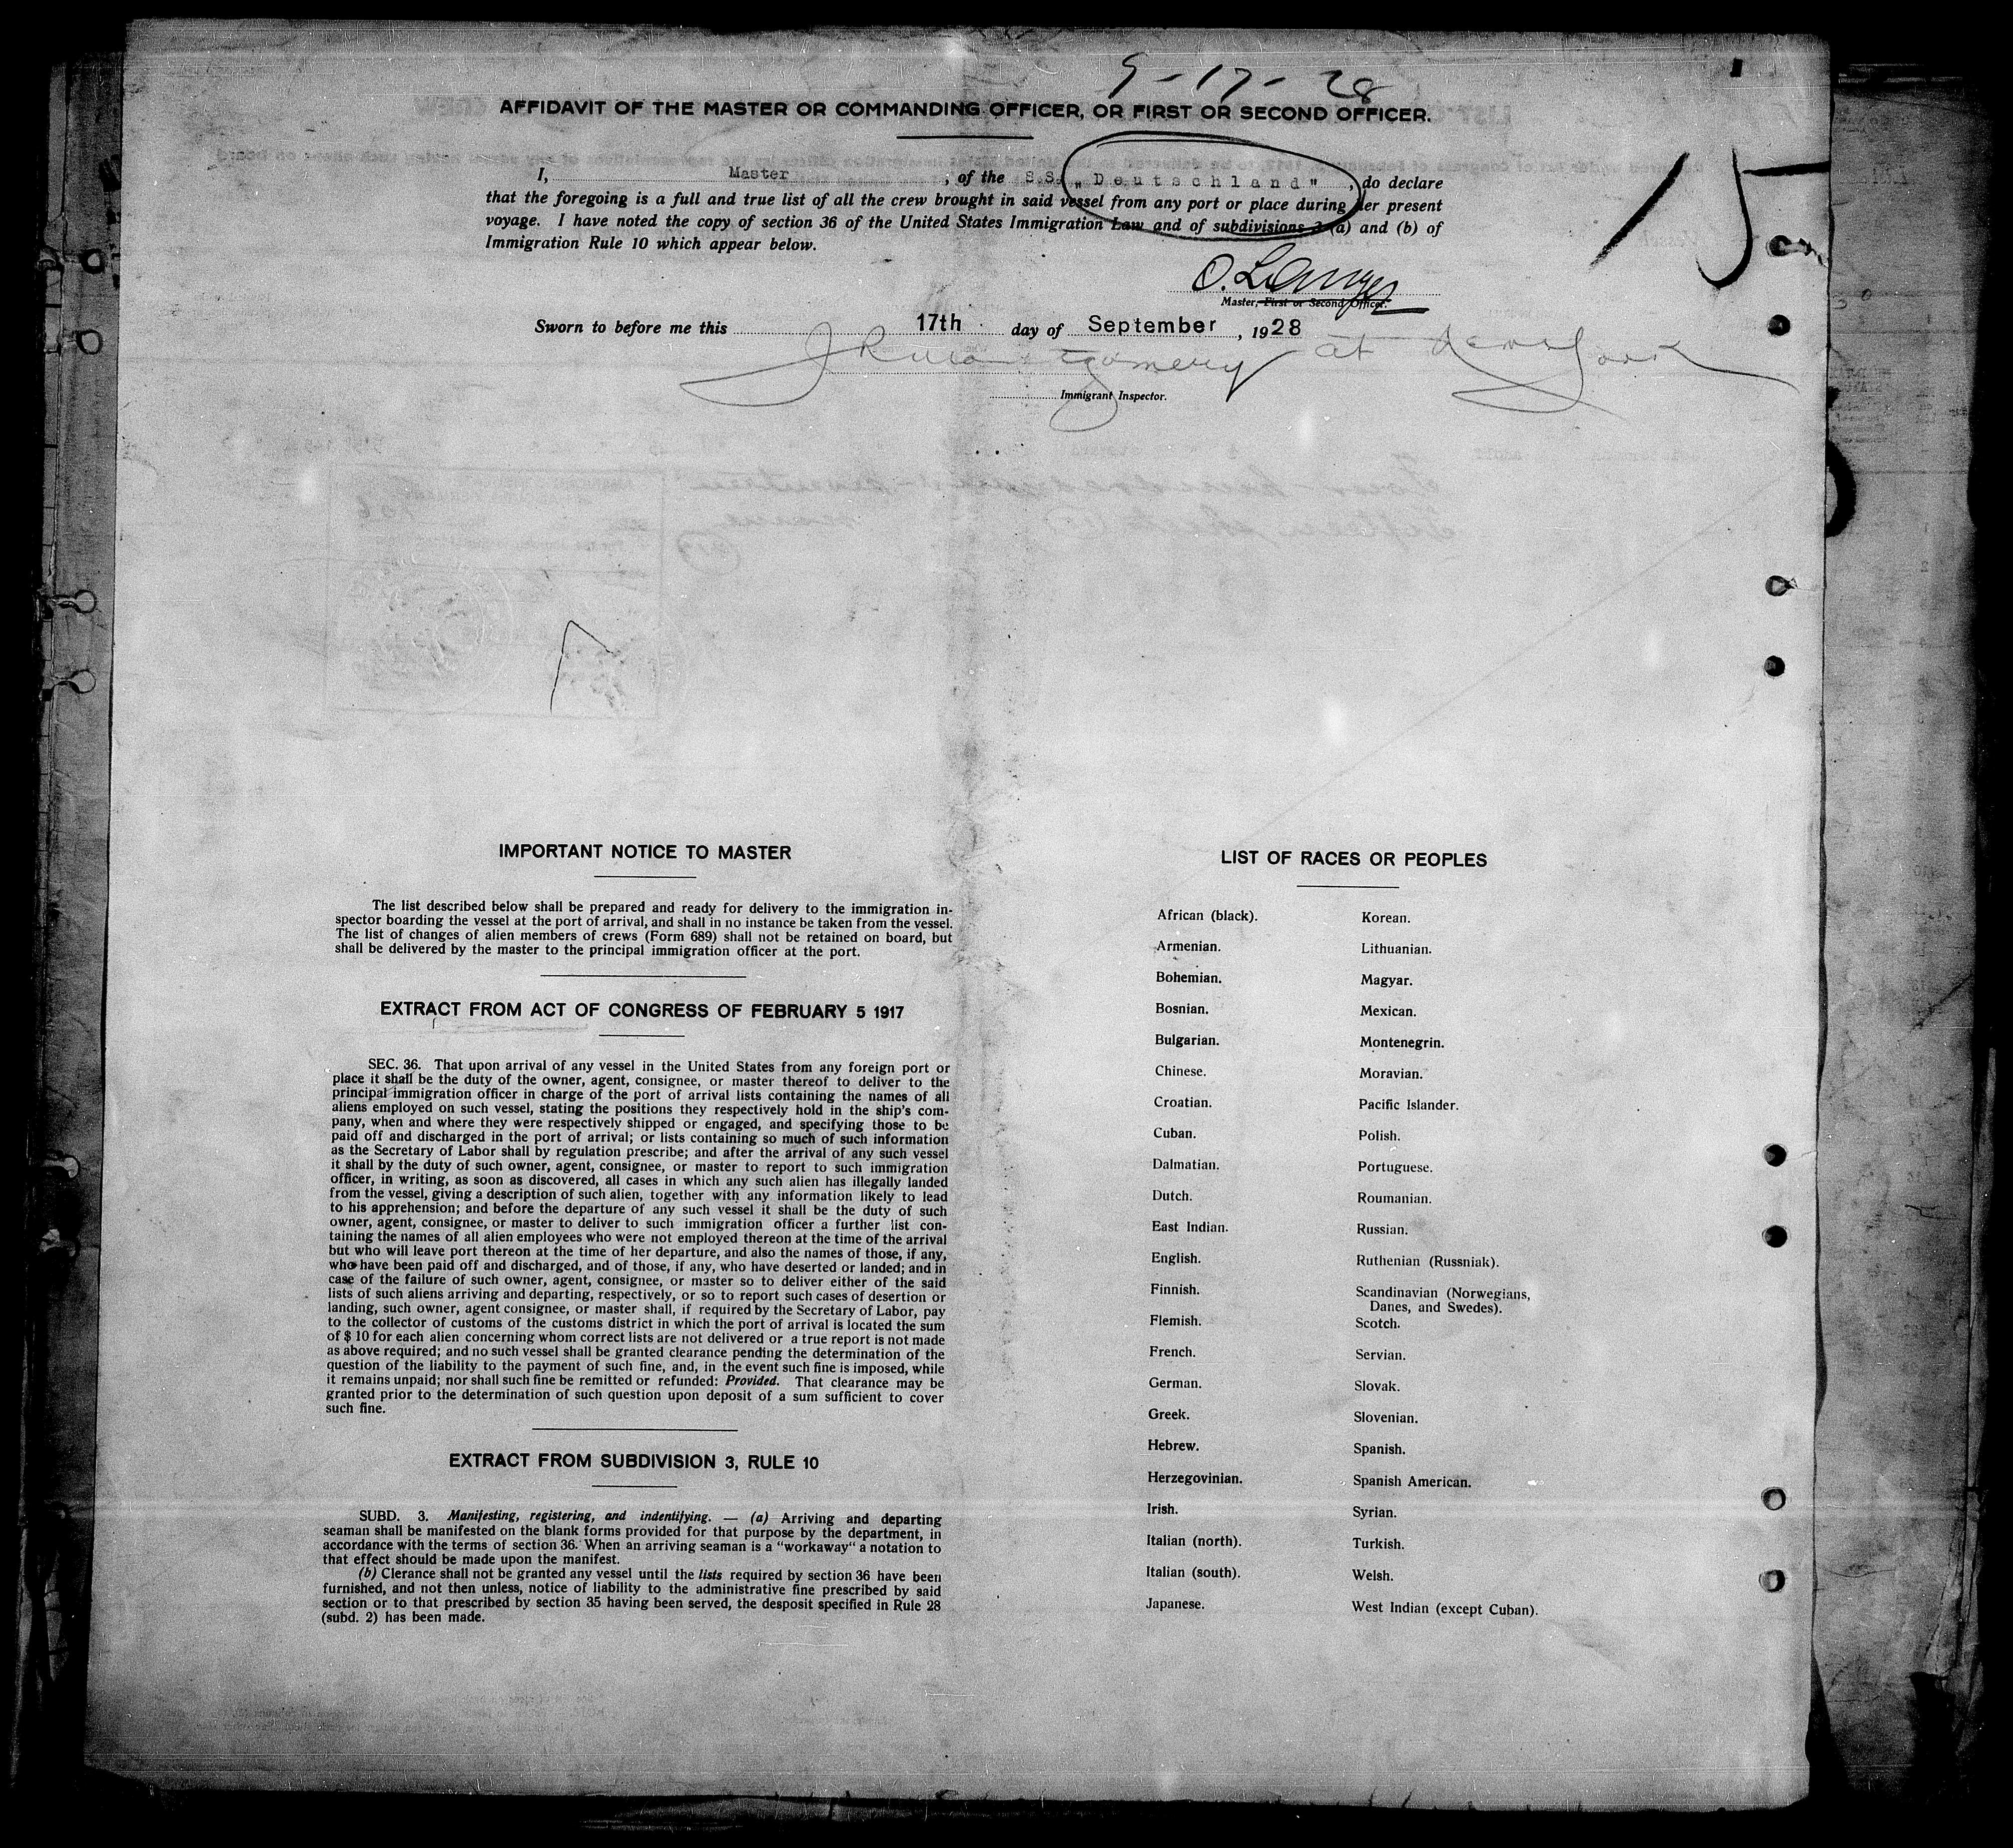 9-17-28
AFFIDAVIT OF THE MASTER OR COMMANDING OFFICER, OR FIRST OR SECOND OFFICER.
15
I, Master, of the S.S. „Deutschland", do declare
that the foregoing is a full and true list of all the crew brought in said vessel from any port or place during her present
voyage. I have noted the copy of section 36 of the United States Immigration Law and of subdivisions 3 (a) and (b) of
Immigration Rule 10 which appear below.
Master, First or Second Officer.
Sworn to before me this 17th day of September, 1928
Montgomery at New York
Immigrant Inspector.
IMPORTANT NOTICE TO MASTER
The list described below shall be prepared and ready for delivery to the immigration in-
spector boarding the vessel at the port of arrival, and shall in no instance be taken from the vessel.
The list of changes of alien members of crews (Form 689) shall not be retained on board, but
shall be delivered by the master to the principal immigration officer at the port.
EXTRACT FROM ACT OF CONGRESS OF FEBRUARY 5 1917
SEC. 36. That upon arrival of any vessel in the United States from any foreign port or
place it shall be the duty of the owner, agent, consignee, or master thereof to deliver to the
principal immigration officer in charge of the port of arrival lists containing the names of all
aliens employed on such vessel, stating the positions they respectively hold in the ship's com-
pany, when and where they were respectively shipped or engaged, and specifying those to be
paid off and discharged in the port of arrival; or lists containing so much of such information
as the Secretary of Labor shall by regulation prescribe; and after the arrival of any such vessel
it shall by the duty of such owner, agent, consignee, or master to report to such immigration
officer, in writing, as soon as discovered, all cases in which any such alien has illegally landed
from the vessel, giving a description of such alien, together with any information likely to lead
to his apprehension; and before the departure of any such vessel it shall be the duty of such
owner, agent, consignee, or master to deliver to such immigration officer a further list con-
taining the names of all alien employees who were not employed thereon at the time of the arrival
but who will leave port thereon at the time of her departure, and also the names of those, if any,
who have been paid off and discharged, and of those, if any, who have deserted or landed; and in
case of the failure of such owner, agent, consignee, or master so to deliver either of the said
lists of such aliens arriving and departing, respectively, or so to report such cases of desertion or
landing, such owner, agent consignee, or master shall, if required by the Secretary of Labor, pay
to the collector of customs of the customs district in which the port of arrival is located the sum
of $ 10 for each alien concerning whom correct lists are not delivered or a true report is not made
as above required; and no such vessel shall be granted clearance pending the determination of the
question of the liability to the payment of such fine, and, in the event such fine is imposed, while
it remains unpaid; nor shall such fine be remitted or refunded: Provided. That clearance may be
granted prior to the determination of such question upon deposit of a sum sufficient to cover
such fine.
EXTRACT FROM SUBDIVISION 3, RULE 10
SUBD. 3. Manifesting, registering, and indentifying. — (a) Arriving and departing
seaman shall be manifested on the blank forms provided for that purpose by the department, in
accordance with the terms of section 36. When an arriving seaman is a "workaway" a notation to
that effect should be made upon the manifest.
(b) Clerance shall not be granted any vessel until the lists required by section 36 have been
furnished, and not then unless, notice of liability to the administrative fine prescribed by said
section or to that prescribed by section 35 having been served, the desposit specified in Rule 28
(subd. 2) has been made.
LIST OF RACES OR PEOPLES
African (black).
Armenian.
Bohemian.
Bosnian.
Bulgarian.
Chinese.
Croatian.
Cuban.
Dalmatian.
Dutch.
East Indian.
English.
Finnish.
Flemish.
French.
German.
Greek.
Hebrew.
Herzegovinian.
Irish.
Italian (north).
Italian (south).
Japanese.
Korean.
Lithuanian.
Magyar.
Mexican.
Montenegrin.
Moravian.
Pacific Islander.
Polish.
Portuguese.
Roumanian.
Russian.
Ruthenian (Russniak).
Scandinavian (Norwegians,
Danes, and Swedes).
Scotch.
Servian.
Slovak.
Slovenian.
Spanish.
Spanish American.
Syrian.
Turkish.
Welsh.
West Indian (except Cuban).